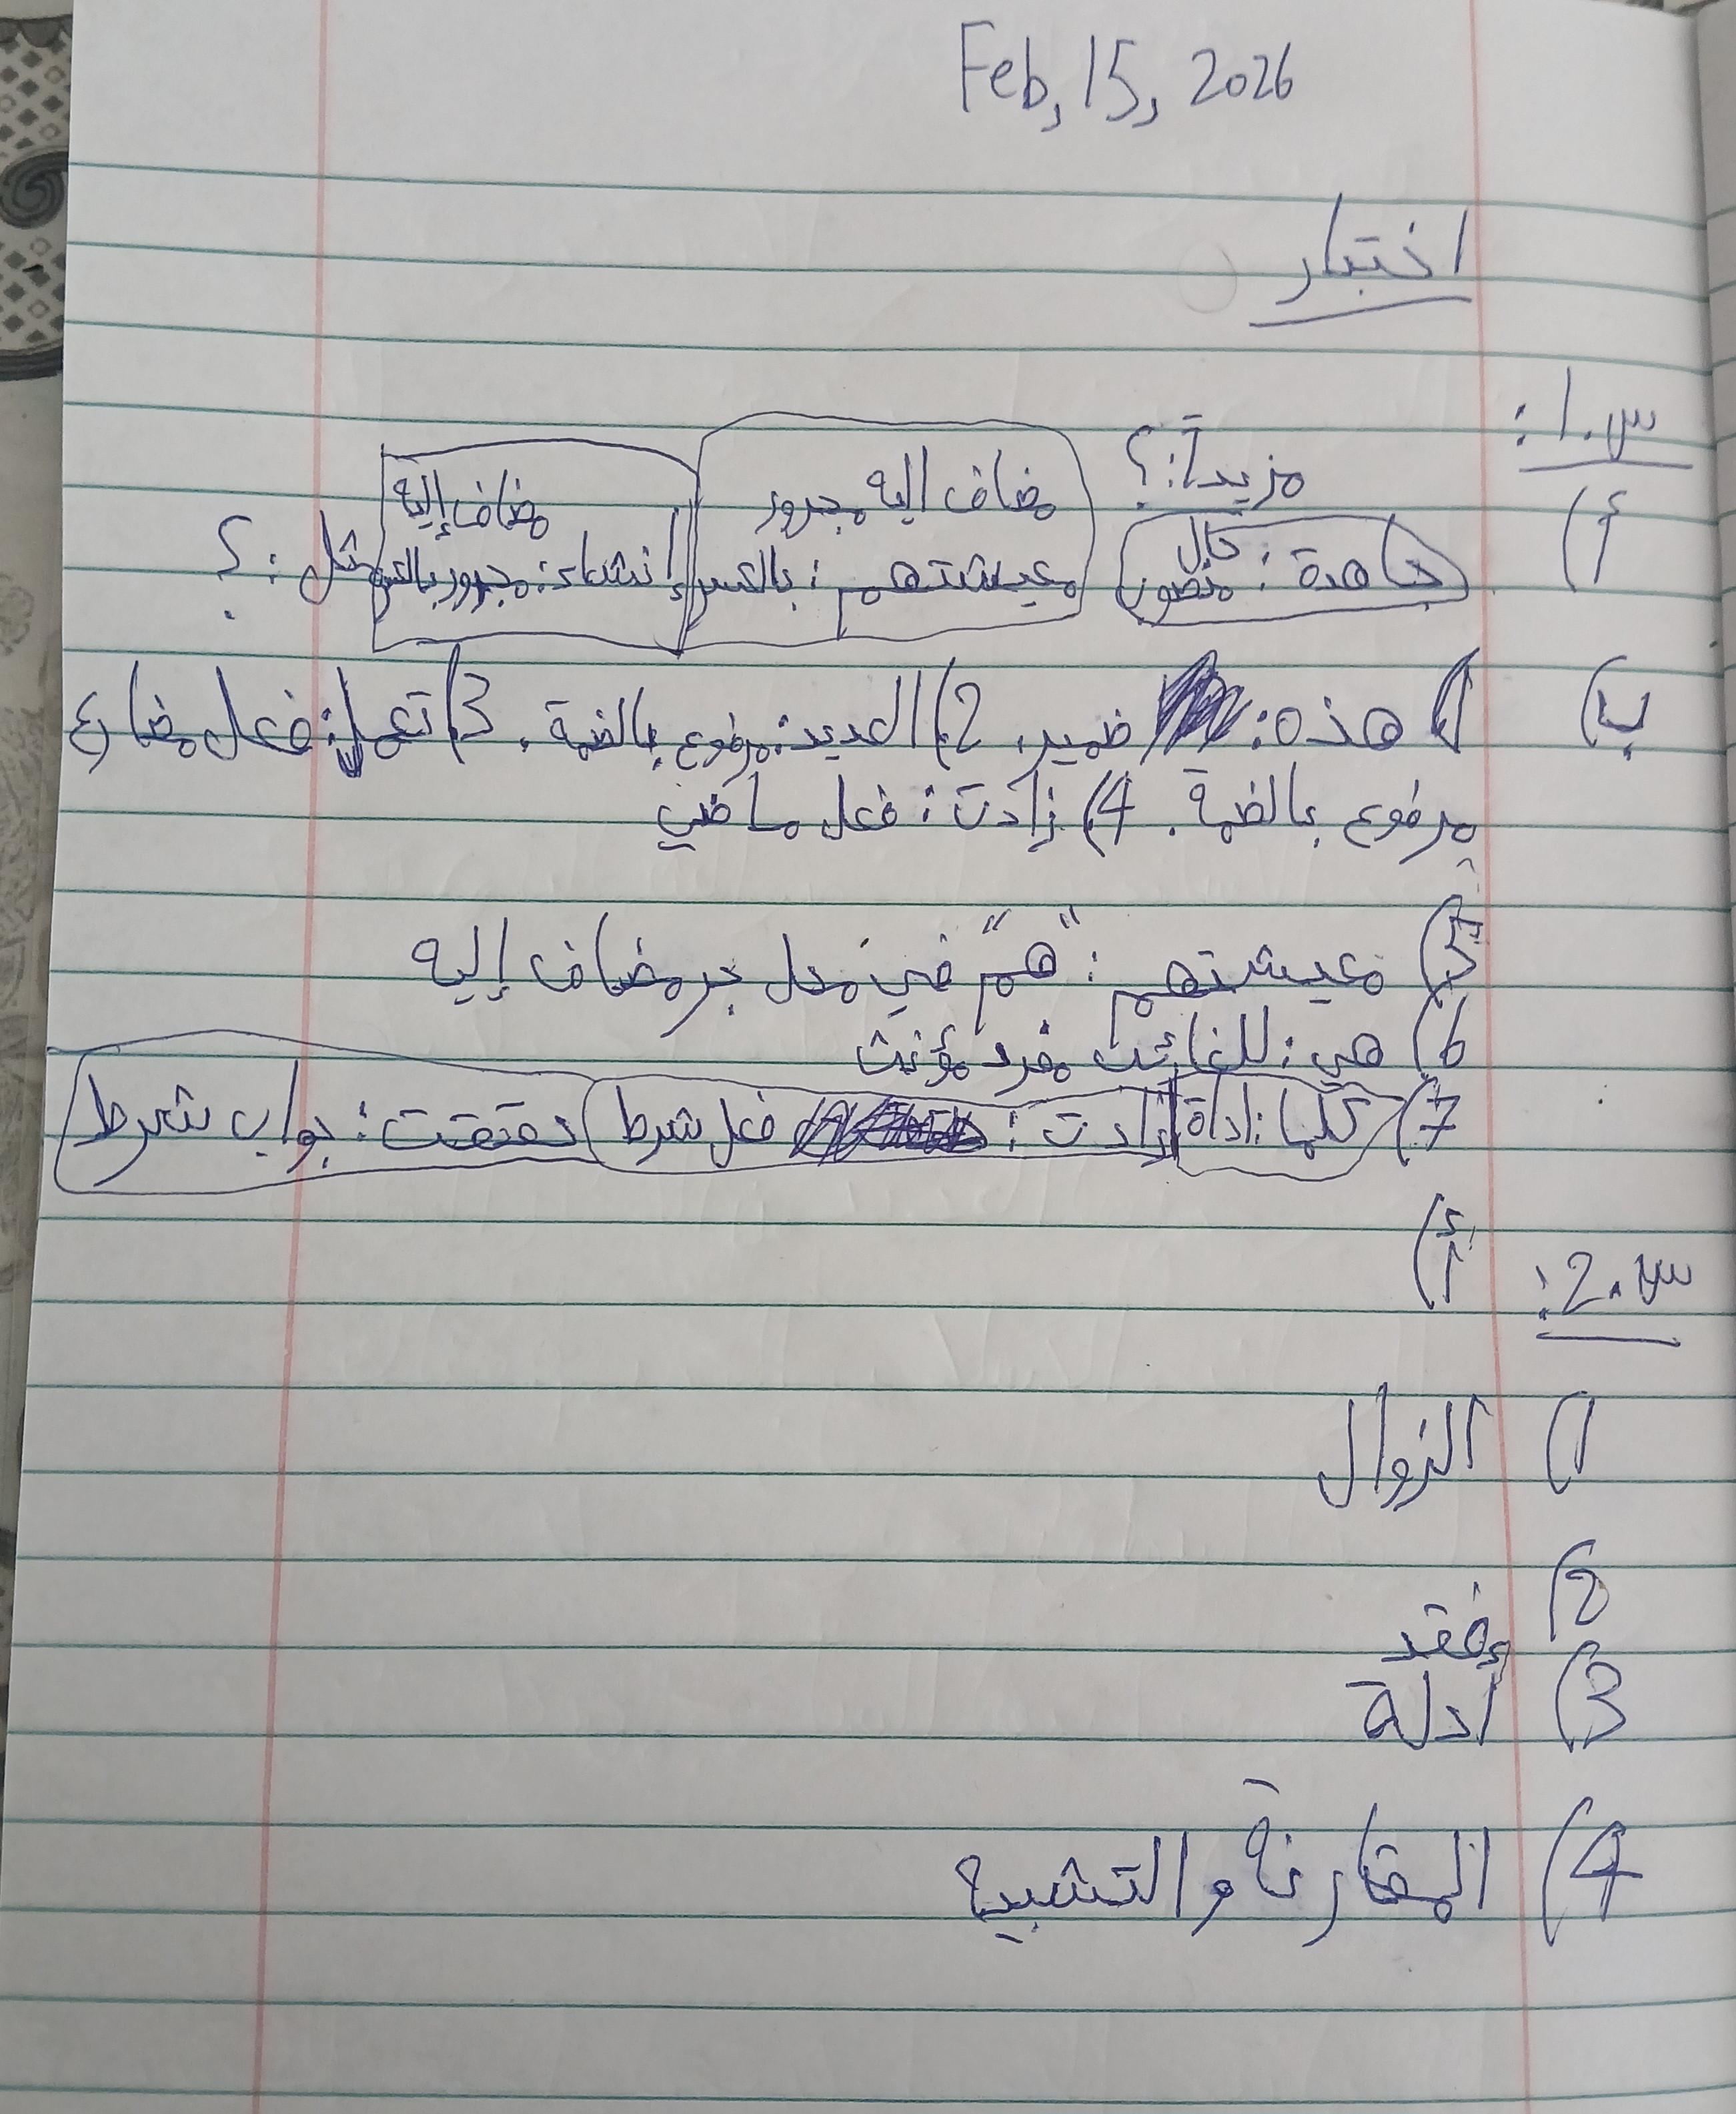 Feb, 15, 2026
اختبار
س.1:
أ) مزيداً: ؟
جاهدة: حال منصوب
معيشتهم: مضاف اليه مجرور بالكسر
إنشاء: مضاف إليه مجرور بالكسر
مثل: ؟
ب) 1) هذه: ضمير. 2) العديد: مرفوع بالضمة. 3) تعمل: فعل مضارع
مرفوع بالضمة. 4) زادت: فعل ماضي
5) معيشتهم: "هم" في محل جر مضاف إليه
6) هي: للغائب مفرد مؤنث
7) كلما: اداة زادت: فعل شرط حققت: جواب شرط
س.2: أ)
1) الزوال
2) فقد
3) أدلة
4) المقارنة والتشبيه